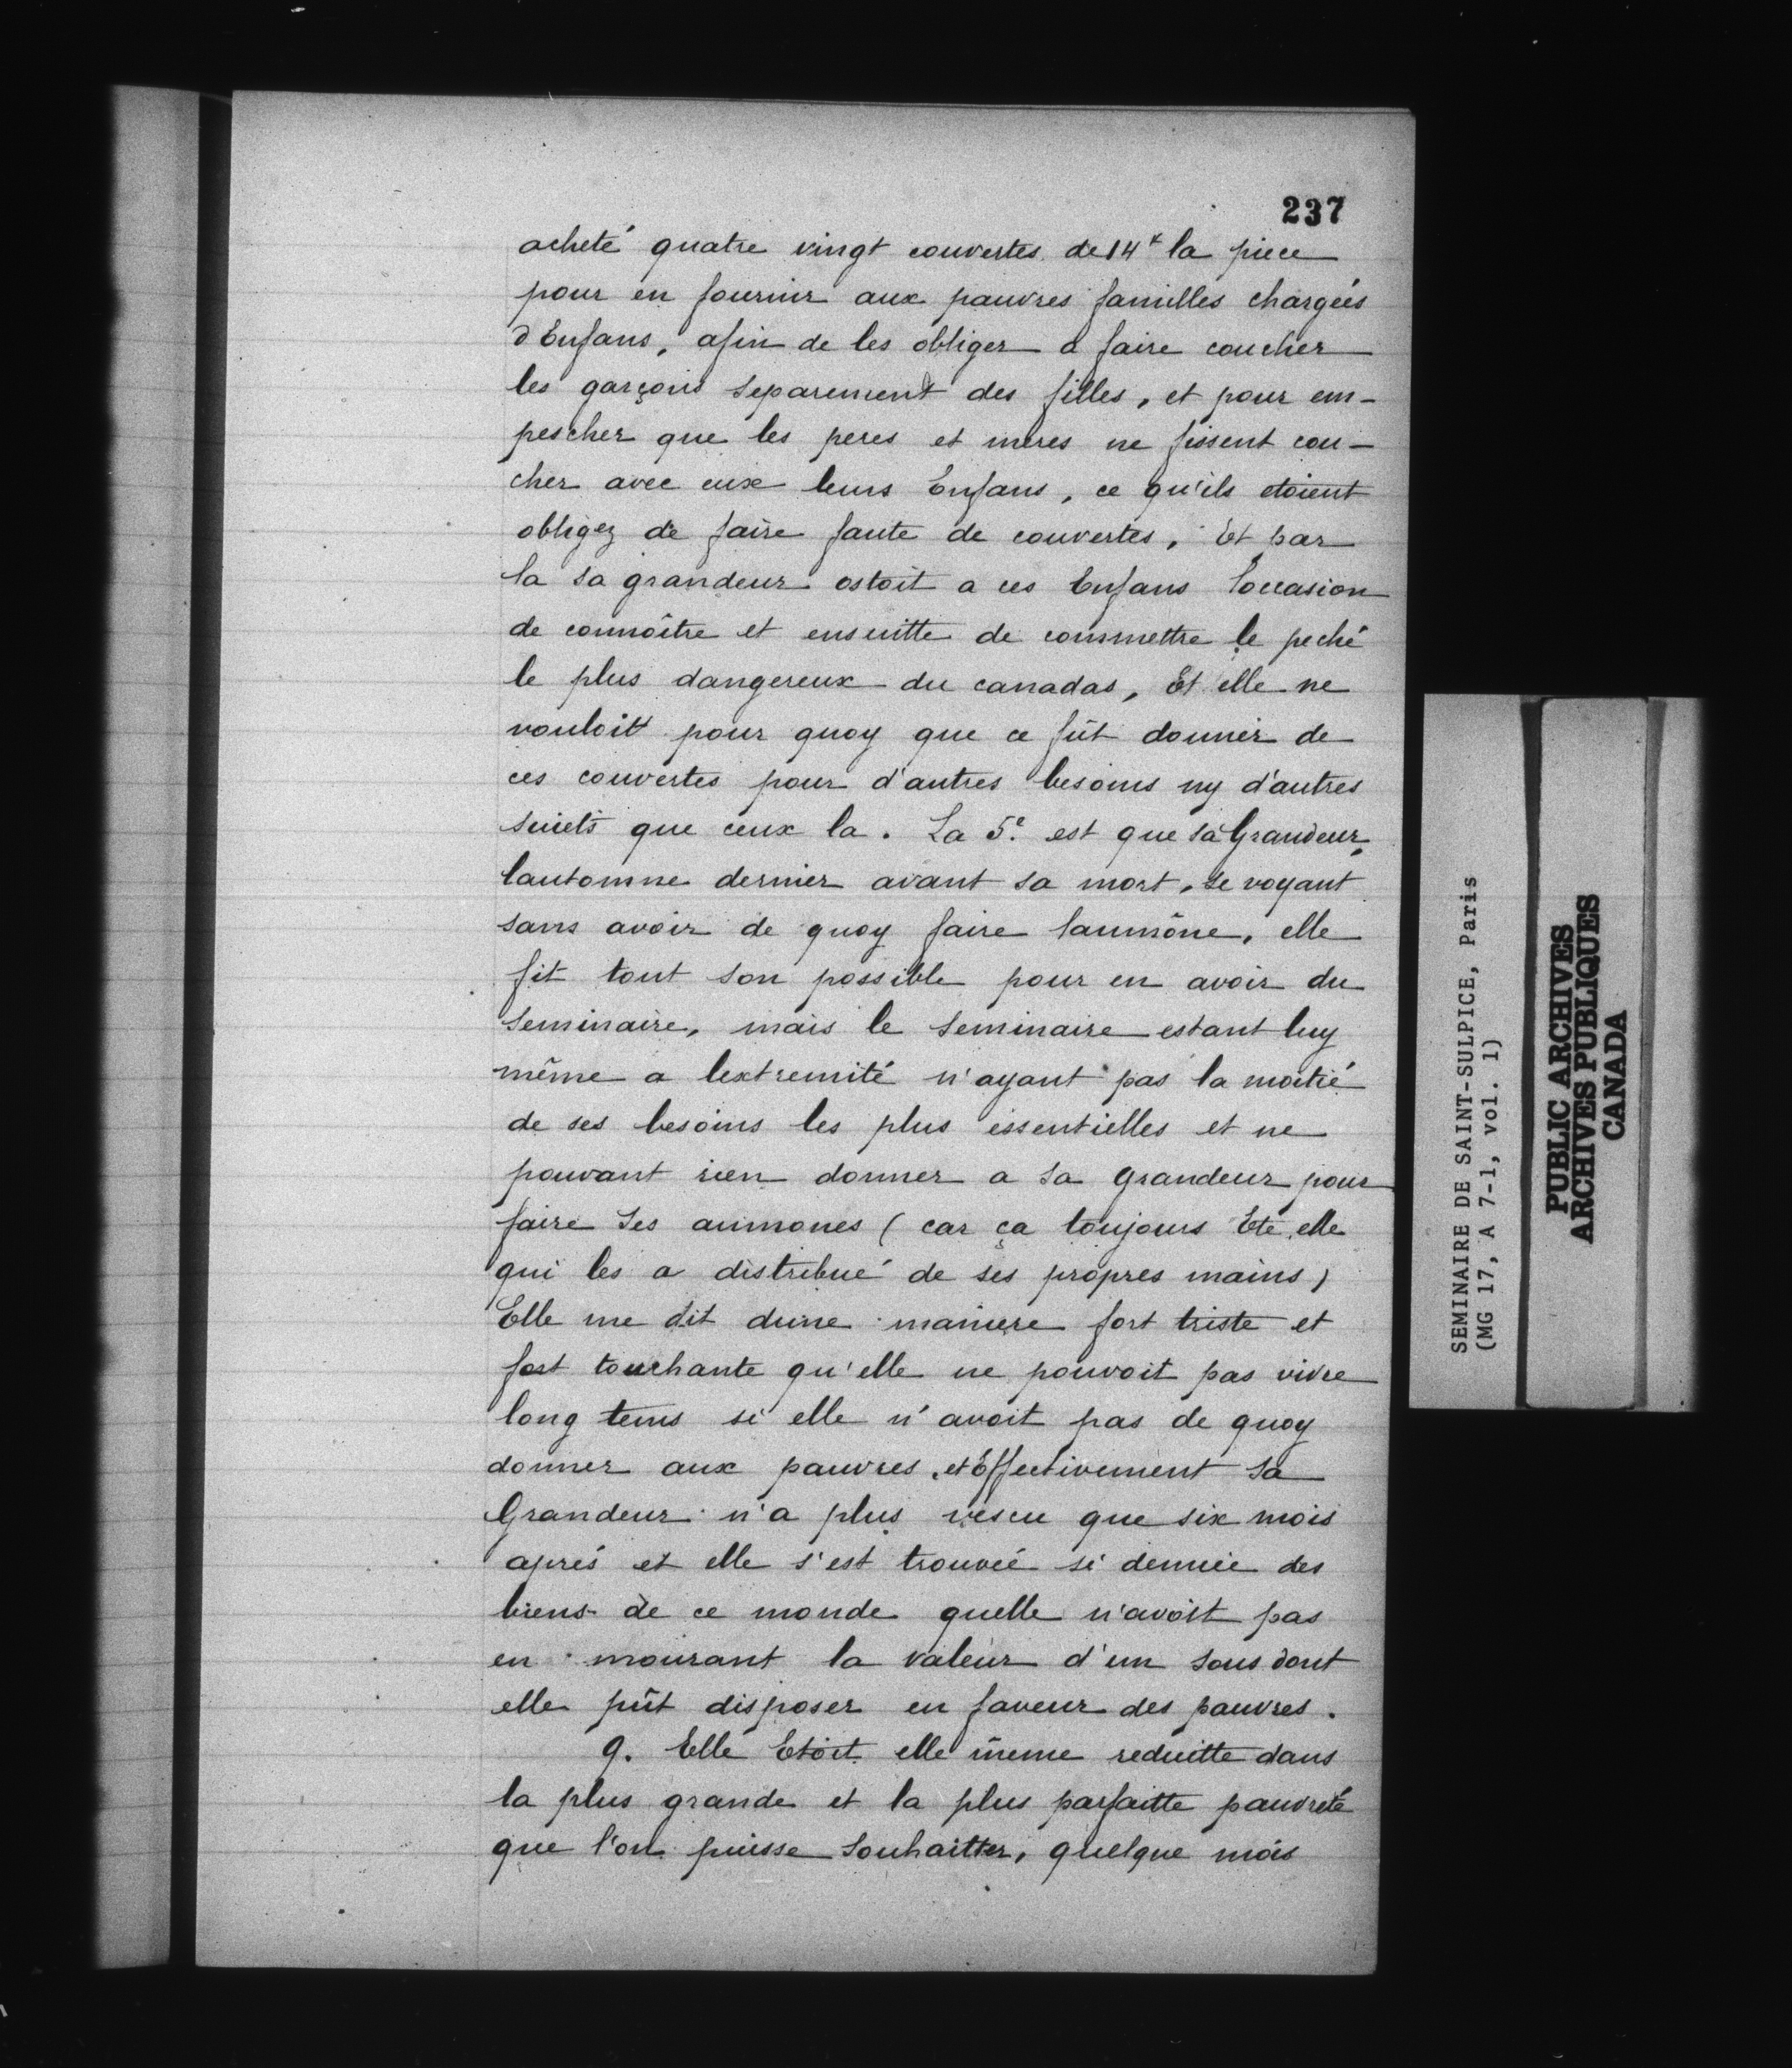 237
acheté quatre vingt couvertes de 14# la piece
pour en fournir aux pauvres familles chargées
d'Enfans, afin de les obliger a faire coucher
les garçons separement des filles, et pour em-
pescher que les peres et meres ne fissent cou-
cher avec eux leurs Enfans, ce qu'ils etoient
obligez de faire faute de couvertes, Et par
la sa grandeur ostoit a ces Enfans loccasion
de connoître et ensuitte de commettre le peché
le plus dangereux du canadas, Et elle ne
vouloit pour quoy que ce fût donner de
ces couvertes pour d'autres besoins ny d'autres
suiets que ceux la. La 5e. est que sa Grandeur,
lautomne dernier avant sa mort, se voyant
sans avoir de quoy faire laumône, elle
fit tout son possible pour en avoir du
seminaire, mais le seminaire estant luy
même a lextremité n'ayant pas la moitié
de ses besoins les plus essentielles et ne
pouvant rien donner a sa grandeur pour
faire ses aumones (car ça toujours Eté elle
qui les a distribué de ses propres mains)
Elle me dit dune maniere fort triste et
fort touchante qu'elle ne pouvoit pas vivre
long tems si elle n'avoit pas de quoy
donner aux pauvres, et Effectivement sa
Grandeur n'a plus vescu que six mois
aprés et elle s'est trouvée si denuée des
biens de ce monde quelle n'avoit pas
en mourant la valeur d'un sous dont
elle pût disposer en faveur des pauvres.
9. Elle Etoit elle même reduitte dans
la plus grande et la plus parfaitte pauvreté
que l'on puisse souhaitter, quelque mois
SEMINAIRE DE SAINT-SULPICE, Paris
(MG 17, A 7-1, vol. 1)
PUBLIC ARCHIVES
ARCHIVES PUBLIQUES
CANADA